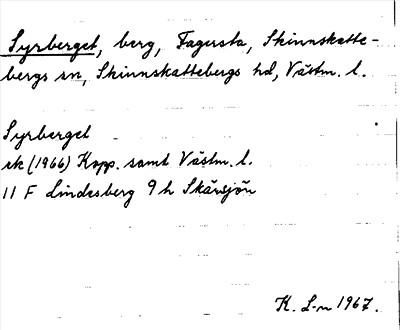 Syrberget, berg, Fagersta, Skinnskatte-
bergs sn, Skinnskattebergs hd, Västm. l.
Syrberget
rk (1966) Kopp. samt Västm. l.
11 F Lindesberg 9 h Skärsjön
K. L-n 1967.